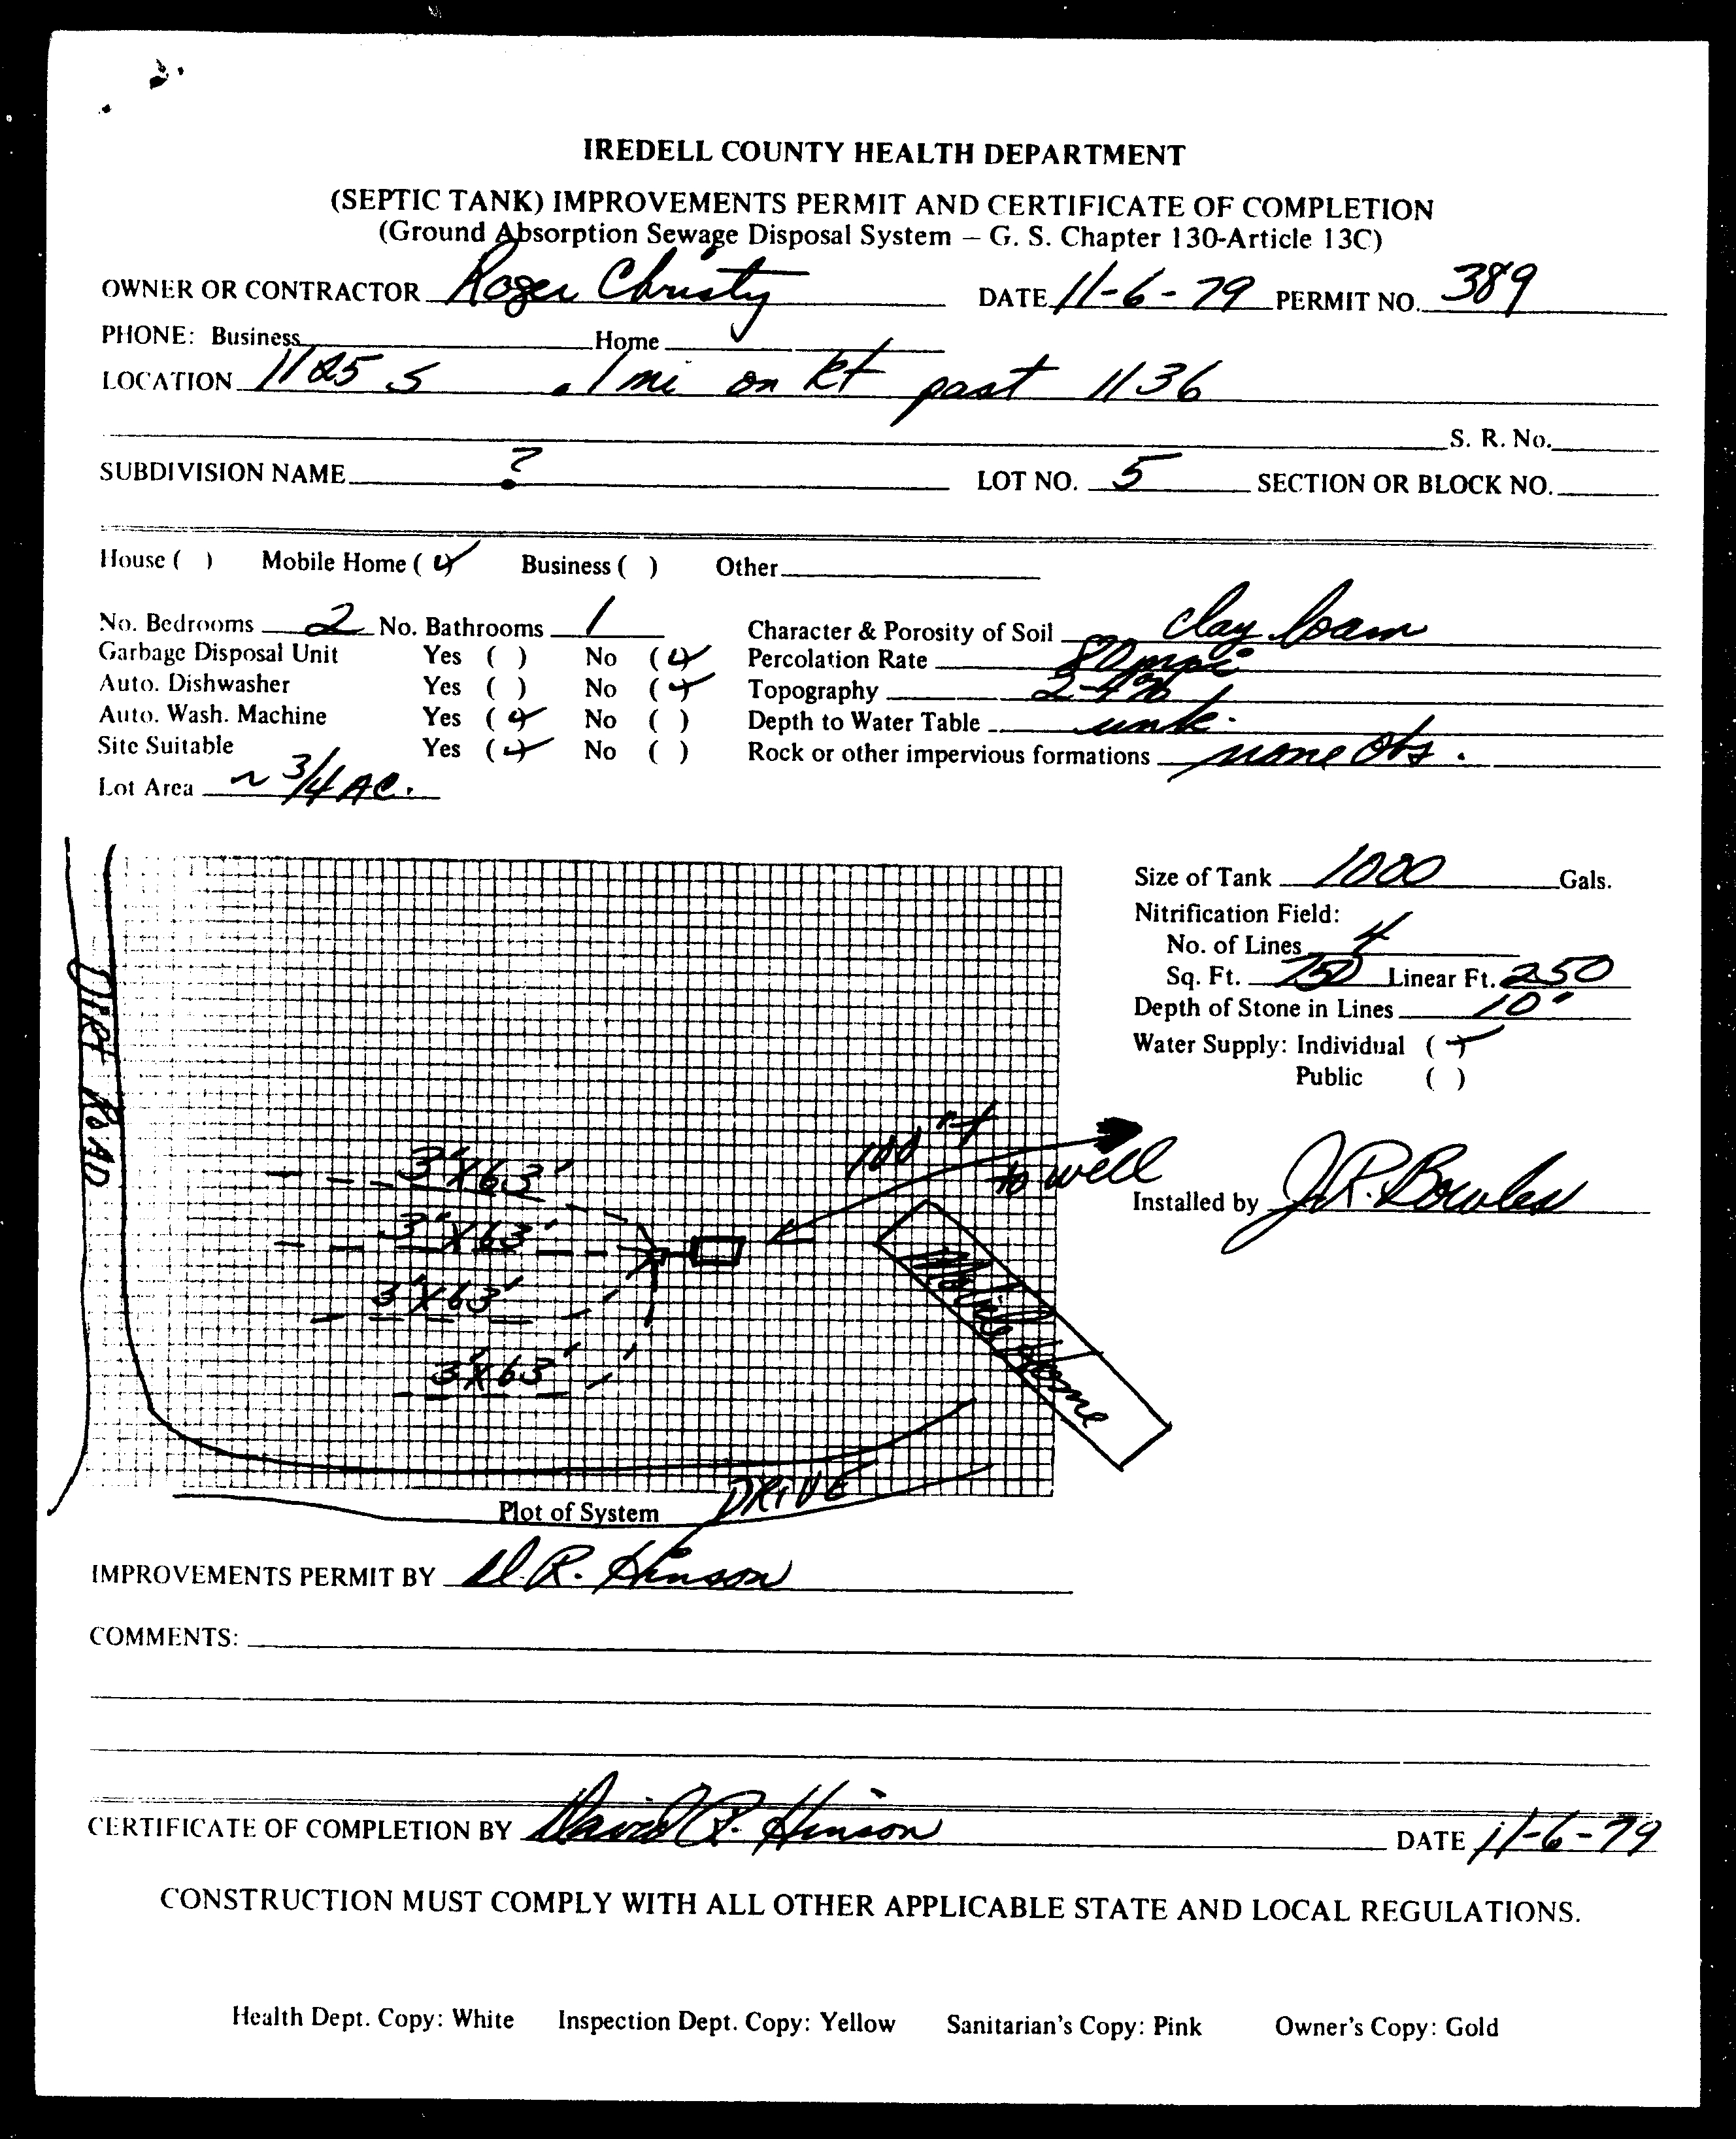 IREDELL COUNTY HEALTH DEPARTMENT
(SEPTIC TANK) IMPROVEMENTS PERMIT AND CERTIFICATE OF COMPLETION
(Ground Absorption Sewage Disposal System – G. S. Chapter 130-Article 13C)
OWNER OR CONTRACTOR Roger Christy DATE 11-6-79 PERMIT NO. 389
PHONE: Business Home
LOCATION 1125 S .1 mi on Rt past 1136
S. R. No.
SUBDIVISION NAME ? LOT NO. 5 SECTION OR BLOCK NO.
House ( ) Mobile Home (✓) Business ( ) Other
No. Bedrooms 2 No. Bathrooms 1 Character & Porosity of Soil clay loam
Garbage Disposal Unit Yes ( ) No (✓) Percolation Rate 80 mpi
Auto. Dishwasher Yes ( ) No (✓) Topography 2-4%
Auto. Wash. Machine Yes (✓) No ( ) Depth to Water Table unk.
Site Suitable Yes (✓) No ( ) Rock or other impervious formations none obs.
Lot Area ~ 3/4 AC.
Size of Tank 1000 Gals.
Nitrification Field:
No. of Lines 4
Sq. Ft. 750 Linear Ft. 250
Depth of Stone in Lines 10"
Water Supply: Individual (✓)
Public ( )
DIRT ROAD
100 ft
to well
3'X63'
3'X63'
3'X63'
3'X63'
Mobile Home
Installed by J.R. Bowles
DRIVE
Plot of System
IMPROVEMENTS PERMIT BY D.R. Hinson
COMMENTS:
CERTIFICATE OF COMPLETION BY David R. Hinson DATE 11-6-79
CONSTRUCTION MUST COMPLY WITH ALL OTHER APPLICABLE STATE AND LOCAL REGULATIONS.
Health Dept. Copy: White Inspection Dept. Copy: Yellow Sanitarian's Copy: Pink Owner's Copy: Gold